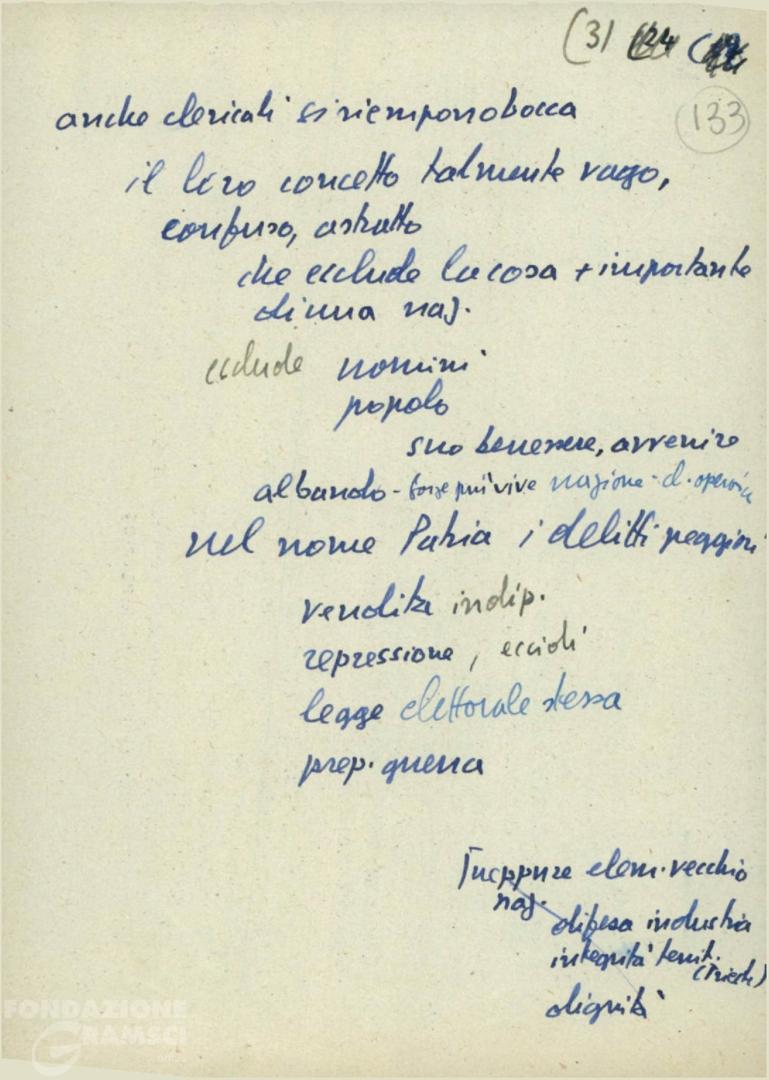 (31 (24
133
anche clericali si riempono bocca
il loro concetto talmente vago,
confuso, astratto
che esclude la cosa + importante
di una naz.
esclude uomini
popolo
suo benessere, avvenire
al bando - forze più vive nazione - cl. operaia
nel nome Patria i delitti peggiori
vendita indip.
repressione, eccidi
legge elettorale stessa
prep. guerra
neppure elem. vecchio
naz.
difesa industria
integrità territ.
(Trieste)
dignità
FONDAZIONE
GRAMSCI